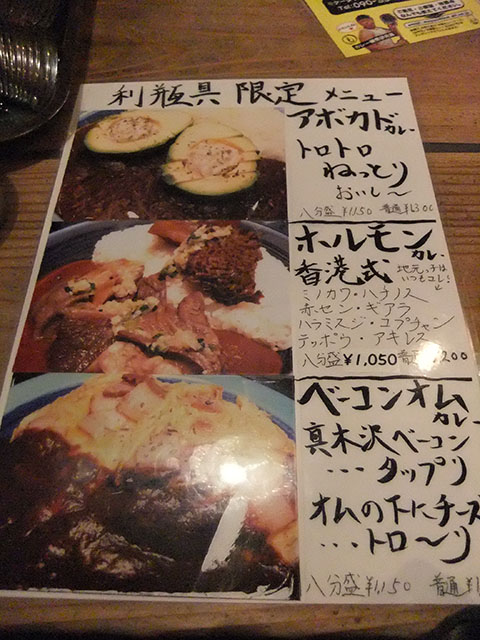 利瓶具 限定 メニュー
アボカドカレー
トロトロ
ねっとり
おいし〜
八分盛 ¥1150 普通 ¥1300
ホルモンカレー
香港式 地元っ子は
いつもコレ!
ミノカワ・ハチノス
赤セン・ギアラ
ハラミスジ・コプチャン
テッポウ・アキレス
八分盛 ¥1,050 普通 ¥1200
ベーコンオムカレー
真木沢ベーコン
・・・タップリ
オムの下にチーズ
・・・トロ〜リ
八分盛 ¥1150 普通
Tel:090-